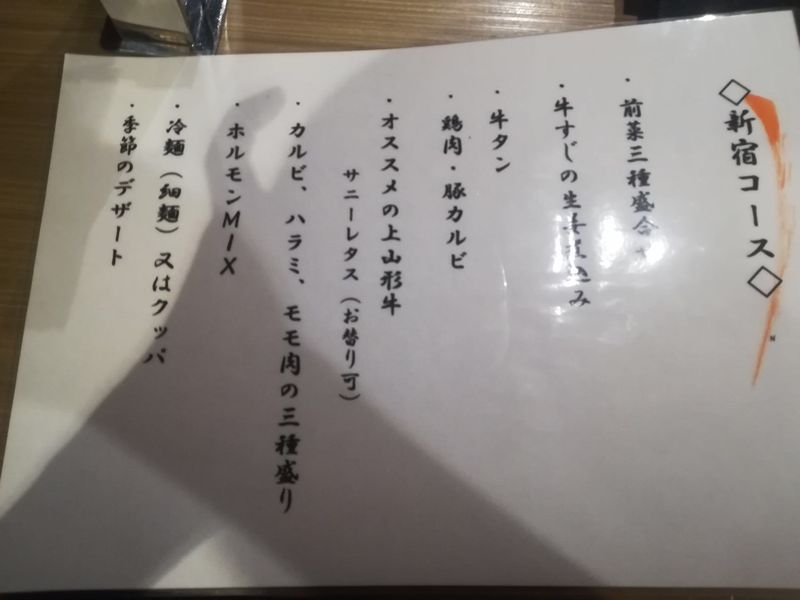 ◇新宿コース◇
・前菜三種盛合せ
・牛すじの生姜煮込み
・牛タン
・鶏肉・豚カルビ
・オススメの上山形牛
サニーレタス（お替り可）
・カルビ、ハラミ、モモ肉の三種盛り
・ホルモンMIX
・冷麺（細麺）又はクッパ
・季節のデザート